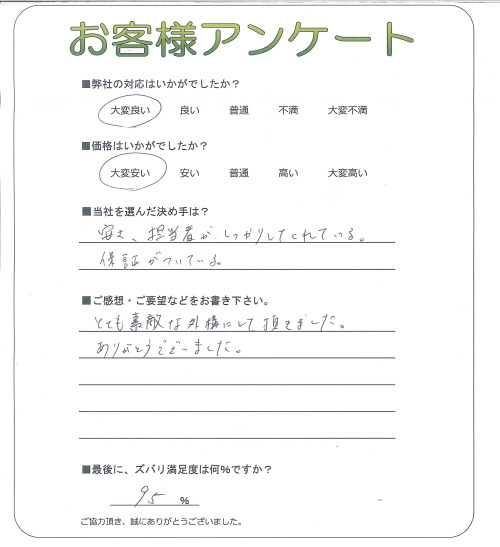 お客様アンケート
■弊社の対応はいかがでしたか？
大変良い 良い 普通 不満 大変不満
■価格はいかがでしたか？
大変安い 安い 普通 高い 大変高い
■当社を選んだ決め手は？
安さ、担当者が、しっかりしてくれている。
保証がついている。
■ご感想・ご要望などをお書き下さい。
とても素敵な外構にして頂きました。
ありがとうございました。
■最後に、ズバリ満足度は何％ですか？
95 ％
ご協力頂き、誠にありがとうございました。